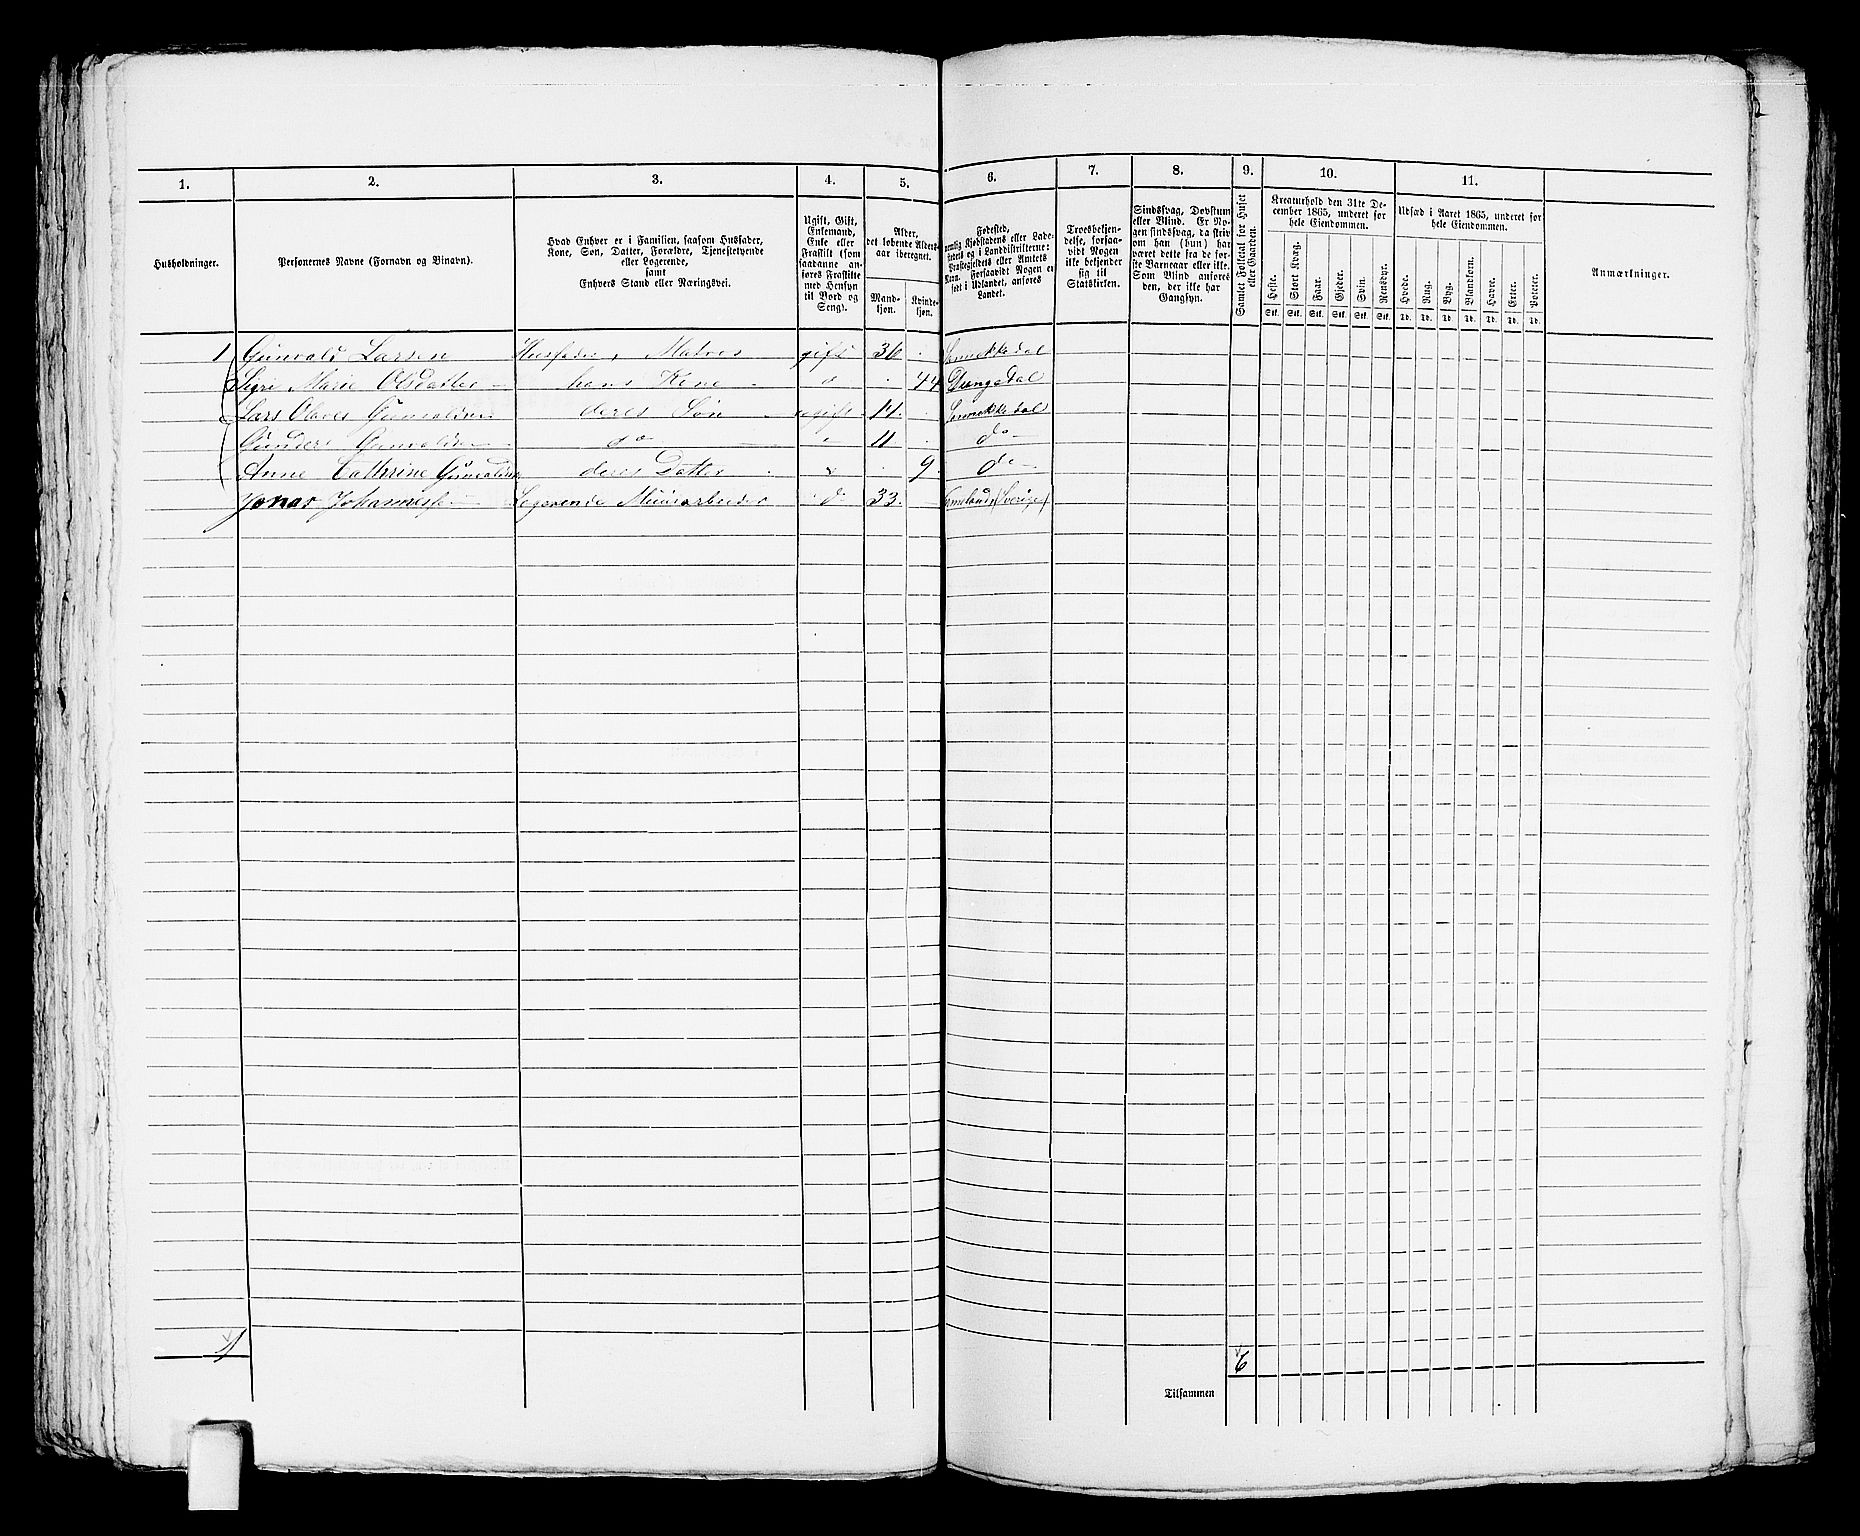 1. 2. 3. 4. 5. 6. 7. 8. 9. 10. 11.
Husholdninger.
Personernes Navne (Fornavn og Tilnavn).
Hvad Enhver er i Familien, saasom Husfader, Kone, Søn, Datter, Forældre, Tjenestetyende eller Logerende, samt Enhvers Stand eller Næringsvei.
Ugift, Gift, Enkemand, Enke eller Fraskilt (som saadanne anføres Fraskilte med Hensyn til Bord og Seng).
Alder, det løbende Aldersaar iberegnet.
Mandkjøn. Kvindekjøn.
Fødested, nemlig Kjøbstadens eller Ladestedets og i Landdistrikterne: Præstegjeldets eller Amtets Navn. Forsaavidt Nogen er født i Udlandet, anføres Landet.
Troesbekjendelse, forsaavidt Nogen ikke bekjender sig til Statskirken.
Sindssvag, Døvstum eller Blind. Er Nogen sindssvag, da skrives om han (hun) har været dette fra de første Barneaar eller ikke. Som Blind anføres den, der ikke har Gangsyn.
Samlet Folketal for Huset eller Gaarden.
Kreaturhold den 31te December 1865, underet for hele Eiendommen.
Heste. Stort Kvæg. Faar. Gjeder. Svin. Rensdyr.
Stk. Stk. Stk. Stk. Stk. Stk.
Udsæd i Aaret 1865, underet for hele Eiendommen.
Hvede. Rug. Byg. Blandkorn. Havre. Erter. Poteter.
Td. Td. Td. Td. Td. Td. Td.
Anmærkninger.
1 Gunvald Larsen Husfader, Matros gift 36 . Sannikkedal
Sigri Marie Olsdatter hans Kone do . 44 Drangedal
Lars Olaves Gunvaldsen deres Søn ugift 14. . Sannikkedal
Gunder Gunvaldsen do 11 . do
Anne Cathrine Gunvaldsen deres Datter . 9. do
Jonas Johannessen Logerende Minearbeider do 33. (Sverige)
1 6
Tilsammen